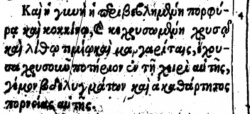 Καὶ ἡ γυνὴ ἡ περιβεβλημένη πορφύ-
ρᾳ καὶ κοκκίνῳ, καὶ κεχρυσωμένη χρυσῷ
καὶ λίθῳ τιμίῳ καὶ μαργαρίταις, ἔχου-
σα χρυσοῦν ποτήριον ἐν τῇ χειρὶ αὐτῆς,
γέμον βδελυγμάτων καὶ ἀκαθάρτητος
πορνείας αὐτῆς.